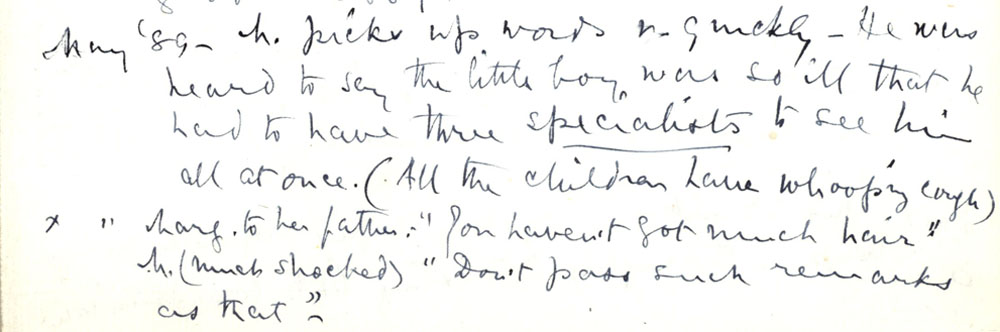 May '89 - M. picks up words v. quickly - He was
heard to say the little boy was so ill that he
had to have three specialists to see him
all at once. (All the children have whooping cough)
x " Marg. to her father:- "You haven't got much hair"
M. (much shocked) "Don't pass such remarks
as that"-